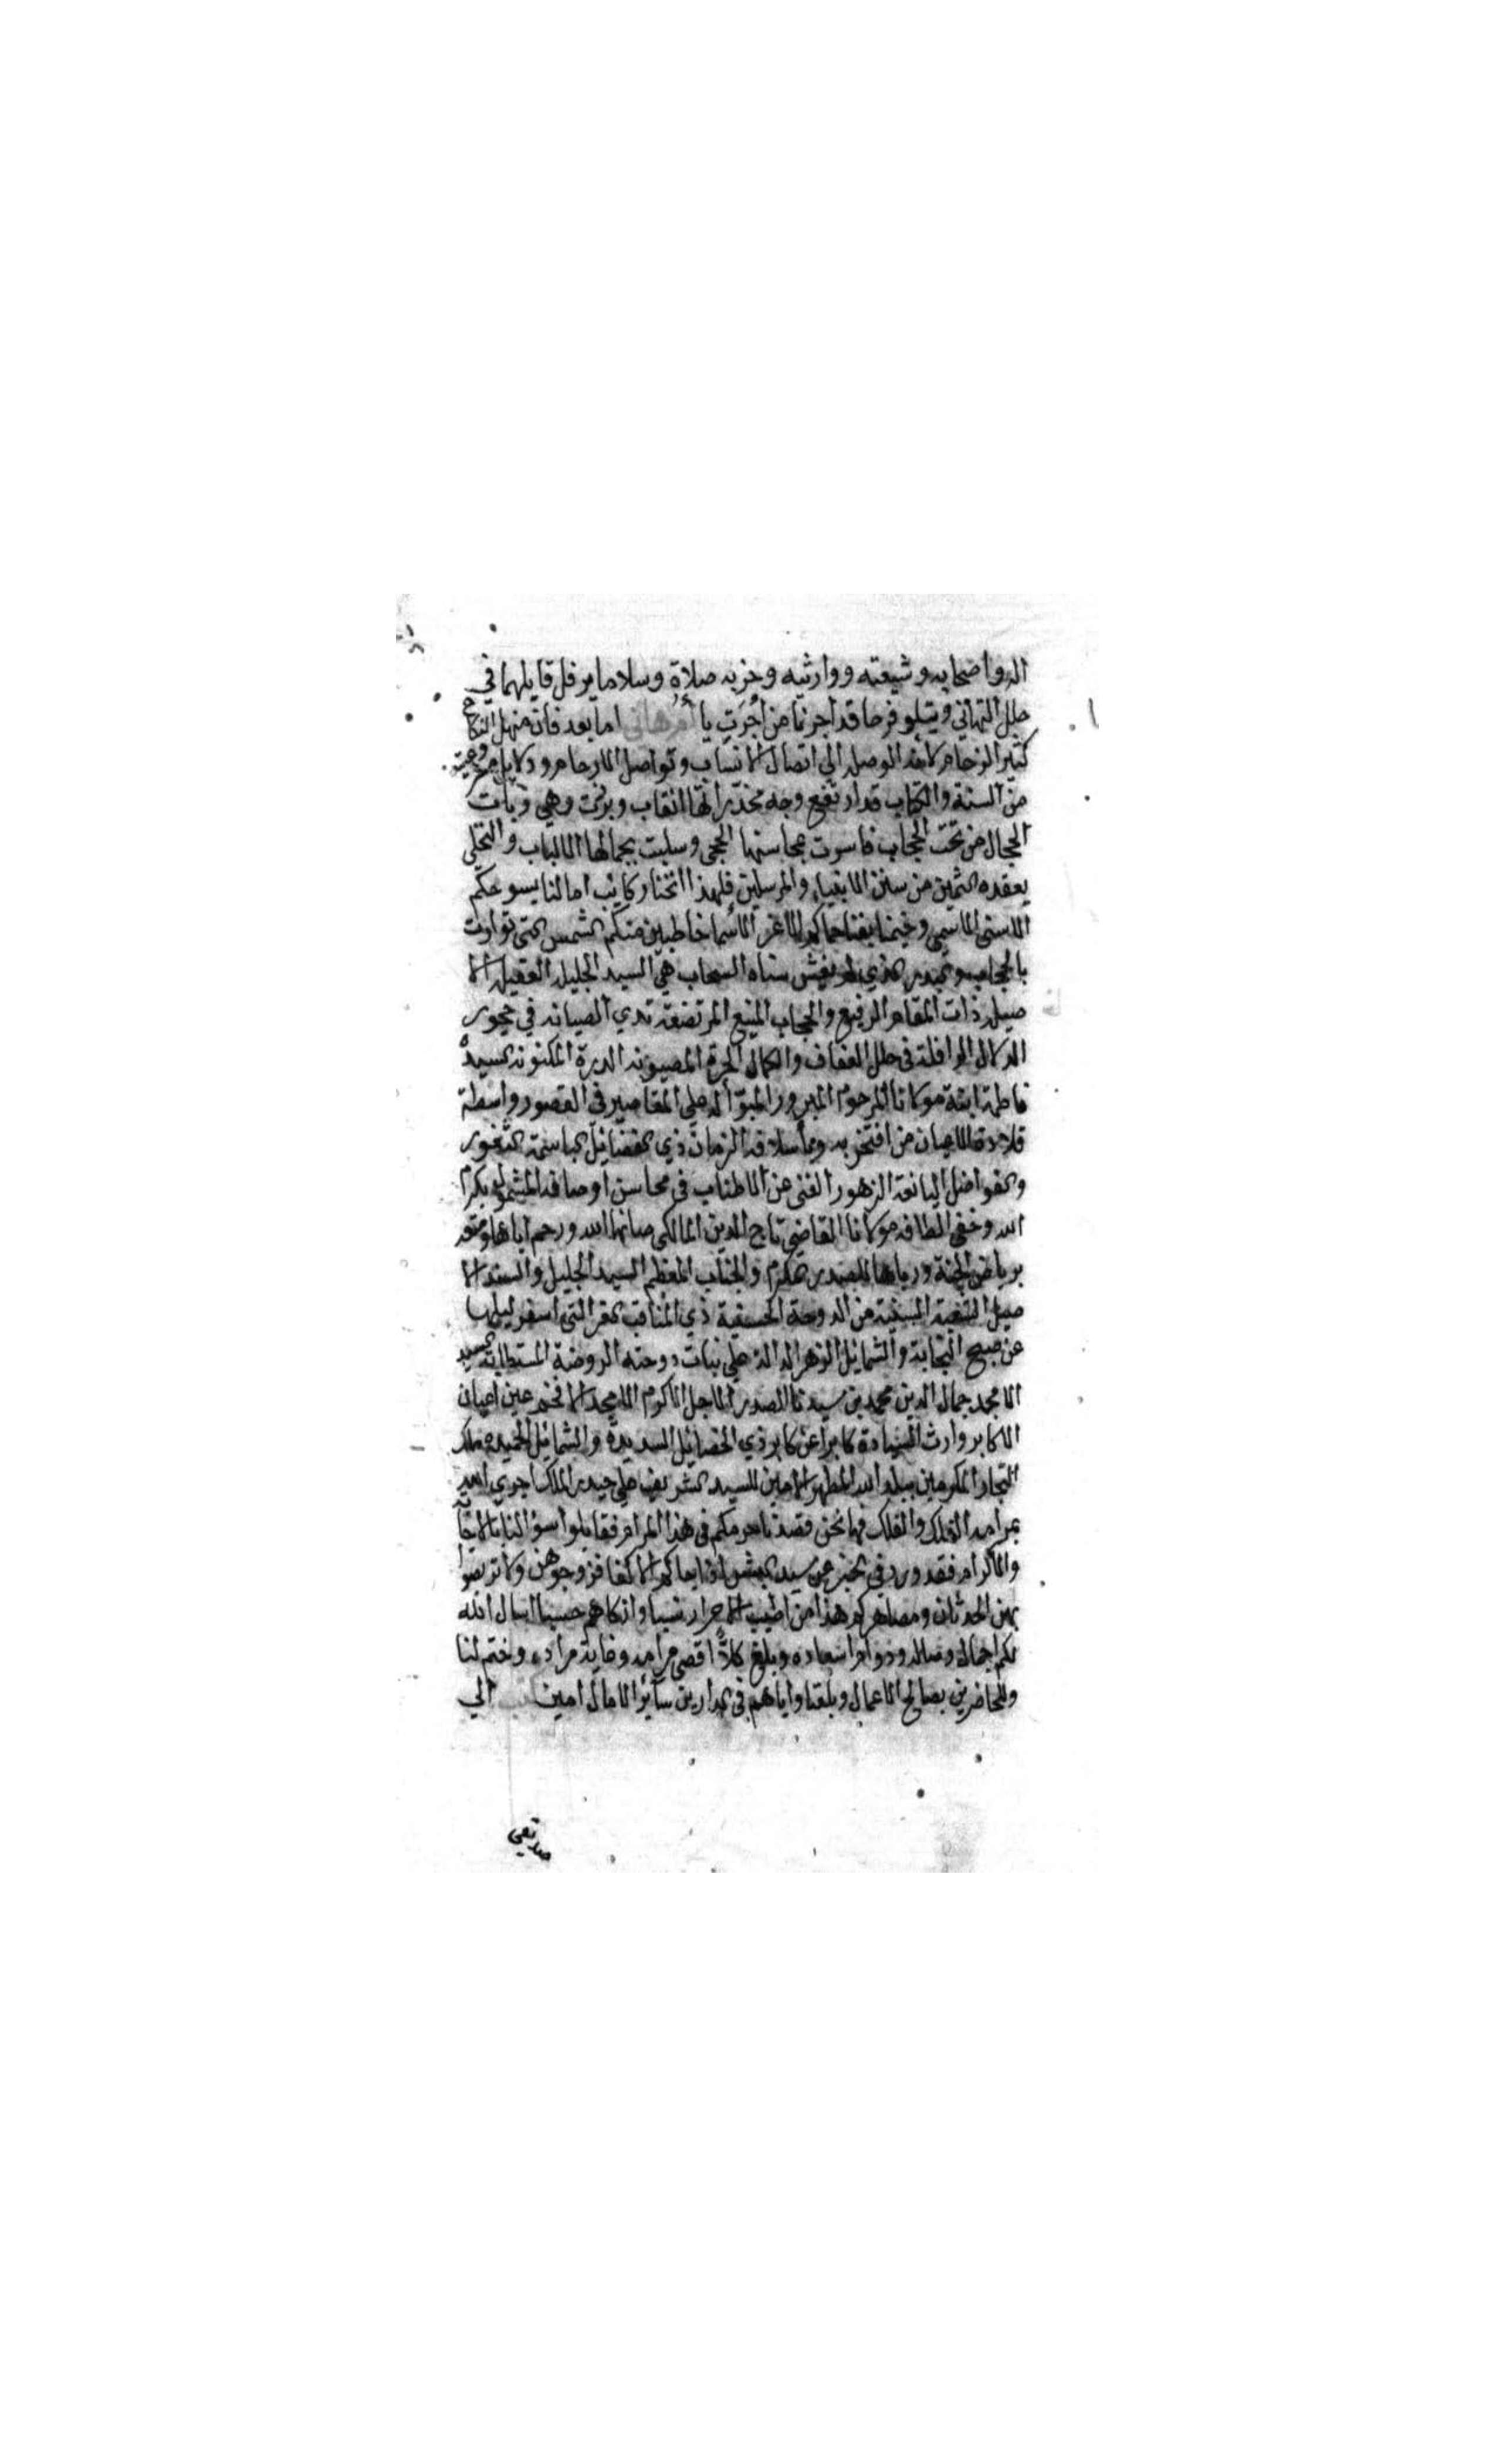 اله واصحابه وشيعته ووارثيه وحزبه صلاة وسلاما يرفل قايلهما في
حلل التهاني ويتلو فرحا قد اجرنا من اجرت يا ام هاني اما بعد فان منهل النكاح
كثير الزحام لاخذ الوصله الي اتصال الانساب وتواصل الارحام ودلايل
من السنة والكتاب قد ارتفع وجه مخدراتها النقاب وبرزت وهي وربات
الحجال من تحت الحجاب فاسرت بمحاسنها الحجى وسلبت بجمالها الالباب والتحلي
بعقده الثمين من سنن الانبياء والمرسلين فلهذا انخنا ركايب امالنا بسوحكم
الاسنى الاسمى وخيمنا بفنا حماكم الاعز الاسما خاطبين منكم الشمس التي توارت
بالحجاب والبدر الذي لم يغش سناه السحاب هي السيده الجليله العقيله الا
صيله ذات المقام الرفيع والحجاب المنيع المرتضعة ثدي الصيانه في حجور
الدلال الرافلة في حلل العفاف والكمال الحرة المصيونه الدرة المكنونه السيدة
فاطمة ابنة مولانا المرحوم المبرور المبوأ اله علي المقاصير في القصور واسطة
قلادة الاعيان من افتخر به وباسلافه الزمان ذي الفضايل الباسمة الثغور
والفواضل اليانعة الزهور الغني عن الاطناب في محاسن اوصافه المشمول بكرم
الله وخفي الطافه مولانا القاضي تاج الدين المالكي صانها الله ورحم اباها ومتعه
برياض الجنة ورباها للصدر المكرم والجناب المعظم السيد الجليل والسند الا
صيل الشعبة السنية من الدوحة الحسنية ذي المناقب الغر التي اسفر ليلها
عن صبح النجابة والشمايل الزهر الداله علي نبات دوحته الروضة المستطابة السيد
الامجد جمال الدين محمد بن سيدنا الصدر الاجل الاكرم الامجد الافخم عين اعيان
الاكابر وارث السيادة كابرا عن كابر ذي الخصايل السديدة والشمايل الحميده ملك
التجار المكرمين ببلد الله المطهر الامين السيد الشريف علي حيدر الملك اجري الله
بمرامه الفلك والفلك فها نحن قصدنا حرمكم في هذا المرام فقابلوا سؤالنا بالاجابة
والاكرام فقد ورد في الخبر عن سيد البشر اذا جاكم الاكفا فزوجوهن ولا تربصوا
بهن الحدثان ومصاهركم هذا من اطيب الاحرار نسبا وازكاهم حسبا اسال الله
لكم اجمال وصاله ودوام اسعاده وبلغ كلاً اقصى مرامه وغاية مراده وختم لنا
وللحاضرين بصالح الاعمال وبلغنا واياهم في الدارين سآئر الامال امين كتب الي
صديقي